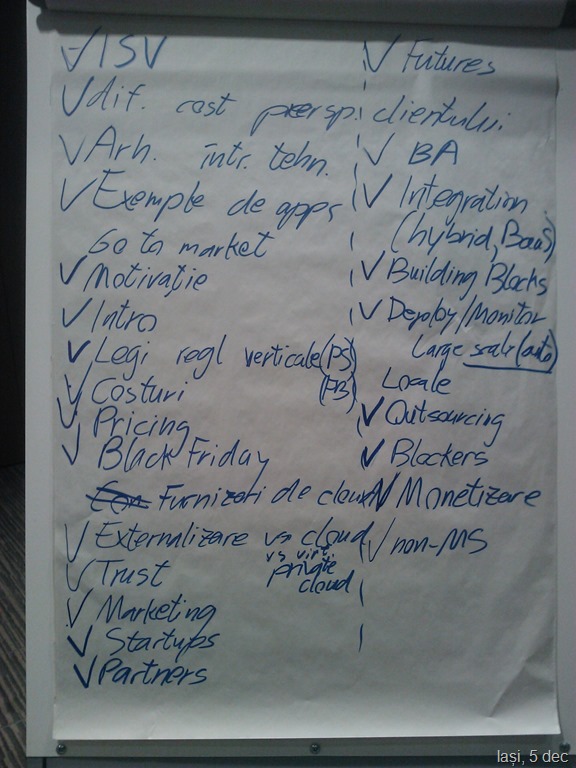 ✓ ISV
✓ dif. cost persp. clientului
✓ Arh. intr. tehn.
✓ Exemple de apps
Go to market
✓ Motivație
✓ Intro
✓ Legi regl verticale (PS)
✓ Costuri (PB)
✓ Pricing
✓ Black Friday
Furnizori de cloud
✓ Externalizare vs cloud
vs virt.
private
cloud
✓ Trust
✓ Marketing
✓ Startups
✓ Partners
✓ Futures
✓ BA
✓ Integration
(hybrid, BaaS)
✓ Building Blocks
✓ Deploy/Monitor
Large scale (auto)
Locale
✓ Outsourcing
✓ Blockers
✓ Monetizare
✓ non-MS
Iași, 5 dec